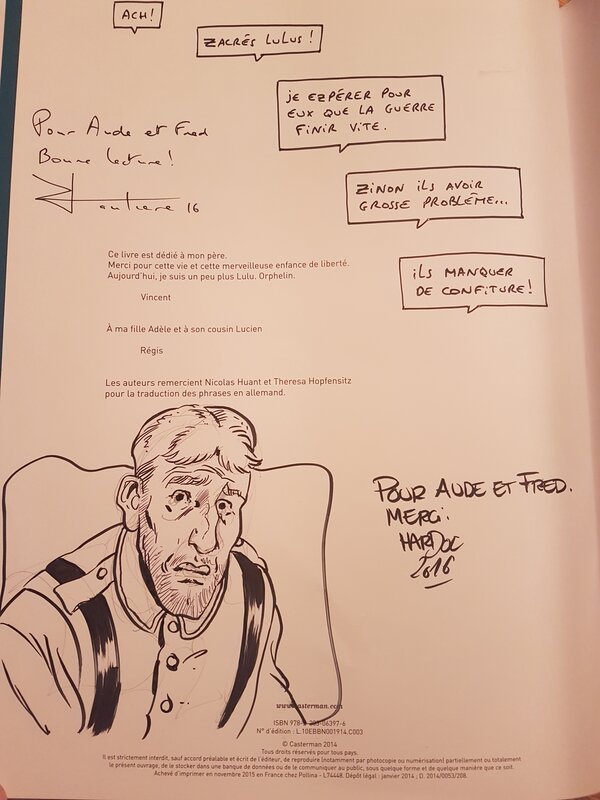 ACH!
ZACRÉS LULUS !
JE EZPÉRER POUR
EUX QUE LA GUERRE
FINIR VITE.
ZINON ILS AVOIR
GROSSE PROBLÊME...
ILS MANQUER
DE CONFITURE!
Pour Aude et Fred
Bonne lecture!
Hautiere 16
Ce livre est dédié à mon père.
Merci pour cette vie et cette merveilleuse enfance de liberté.
Aujourd'hui, je suis un peu plus Lulu. Orphelin.
Vincent
À ma fille Adèle et à son cousin Lucien
Régis
Les auteurs remercient Nicolas Huant et Theresa Hopfensitz
pour la traduction des phrases en allemand.
POUR AUDE ET FRED.
MERCI.
HARDOC
2016
www.casterman.com
ISBN 978-2-203-06397-6
N° d'édition : L.10EBBN001914.C003
© Casterman 2014
Tous droits réservés pour tous pays.
Il est strictement interdit, sauf accord préalable et écrit de l'éditeur, de reproduire (notamment par photocopie ou numérisation) partiellement ou totalement
le présent ouvrage, de le stocker dans une banque de données ou de le communiquer au public, sous quelque forme et de quelque manière que ce soit.
Achevé d'imprimer en novembre 2015 en France chez Pollina - L74448. Dépôt légal : janvier 2014 ; D. 2014/0053/208.